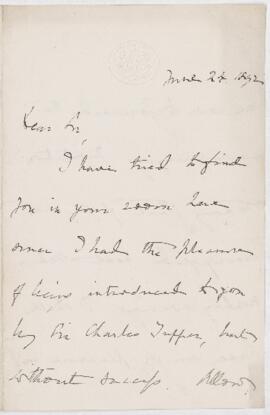 June 24 1892
Dear Sir,
I have tried to find
you in your room here
since I had the pleasure
of being introduced to you
by Sir Charles Tupper, but
without success. Allow